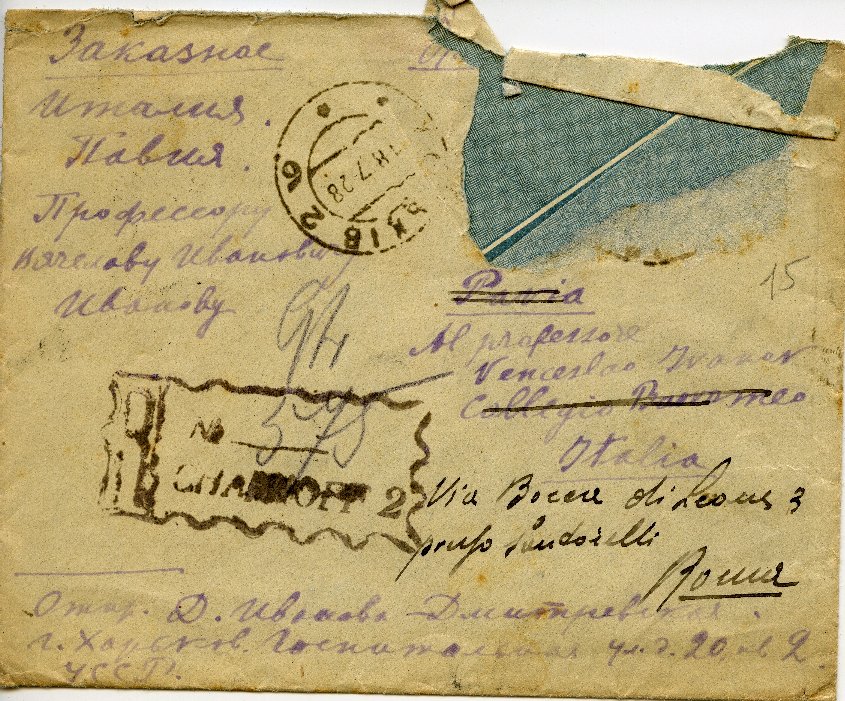 Заказное
Италия.
Павия.
Профессору
Вячеславу Ивановичу
Иванову
18.7.28
94
15
Pavia
Al professore
Venceslao Ivanov
Collegio Borromeo
Italia
R
№ 595
CHARKOFF 2
Via Bocca di Leone 3
presso Pandorelli
Roma
Отпр. Д. Иванова-Дмитревская.
г. Харьков. Госпитальная ул. д. 20, кв 2.
УССР.